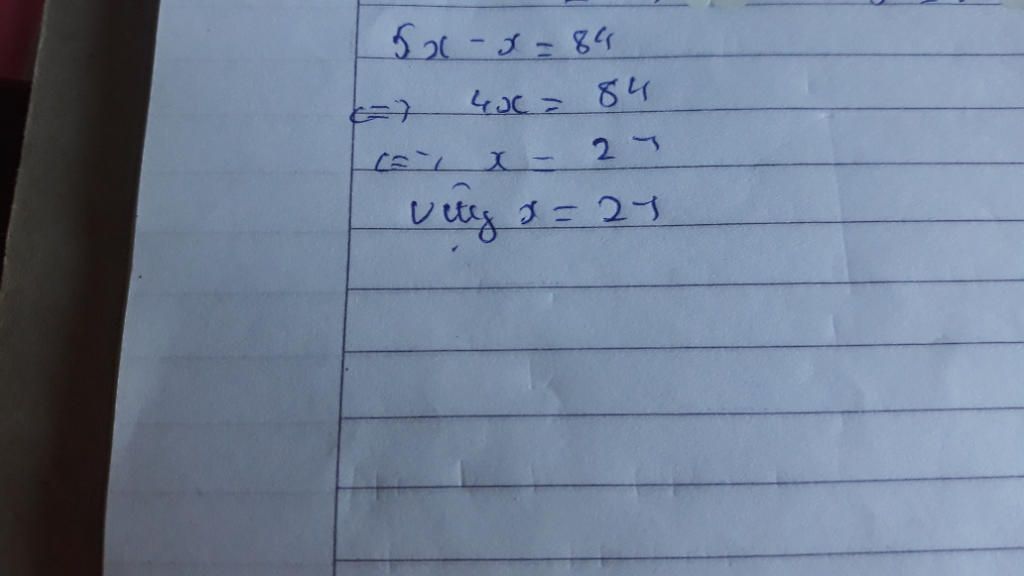 5x - x = 84
<=> 4x = 84
<=> x = 21
Vậy x = 21